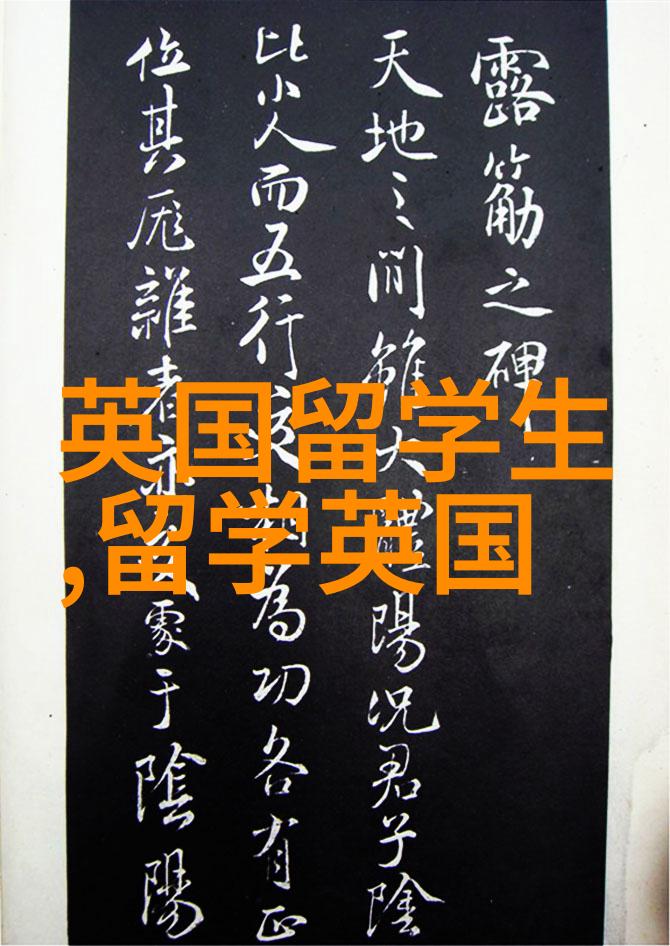 露筋之碑
天地之間雖大體陽况君子陰
比小人而五行為功各有正
位其厖雜者亦處于陰陽
英国留学生
,留学英国